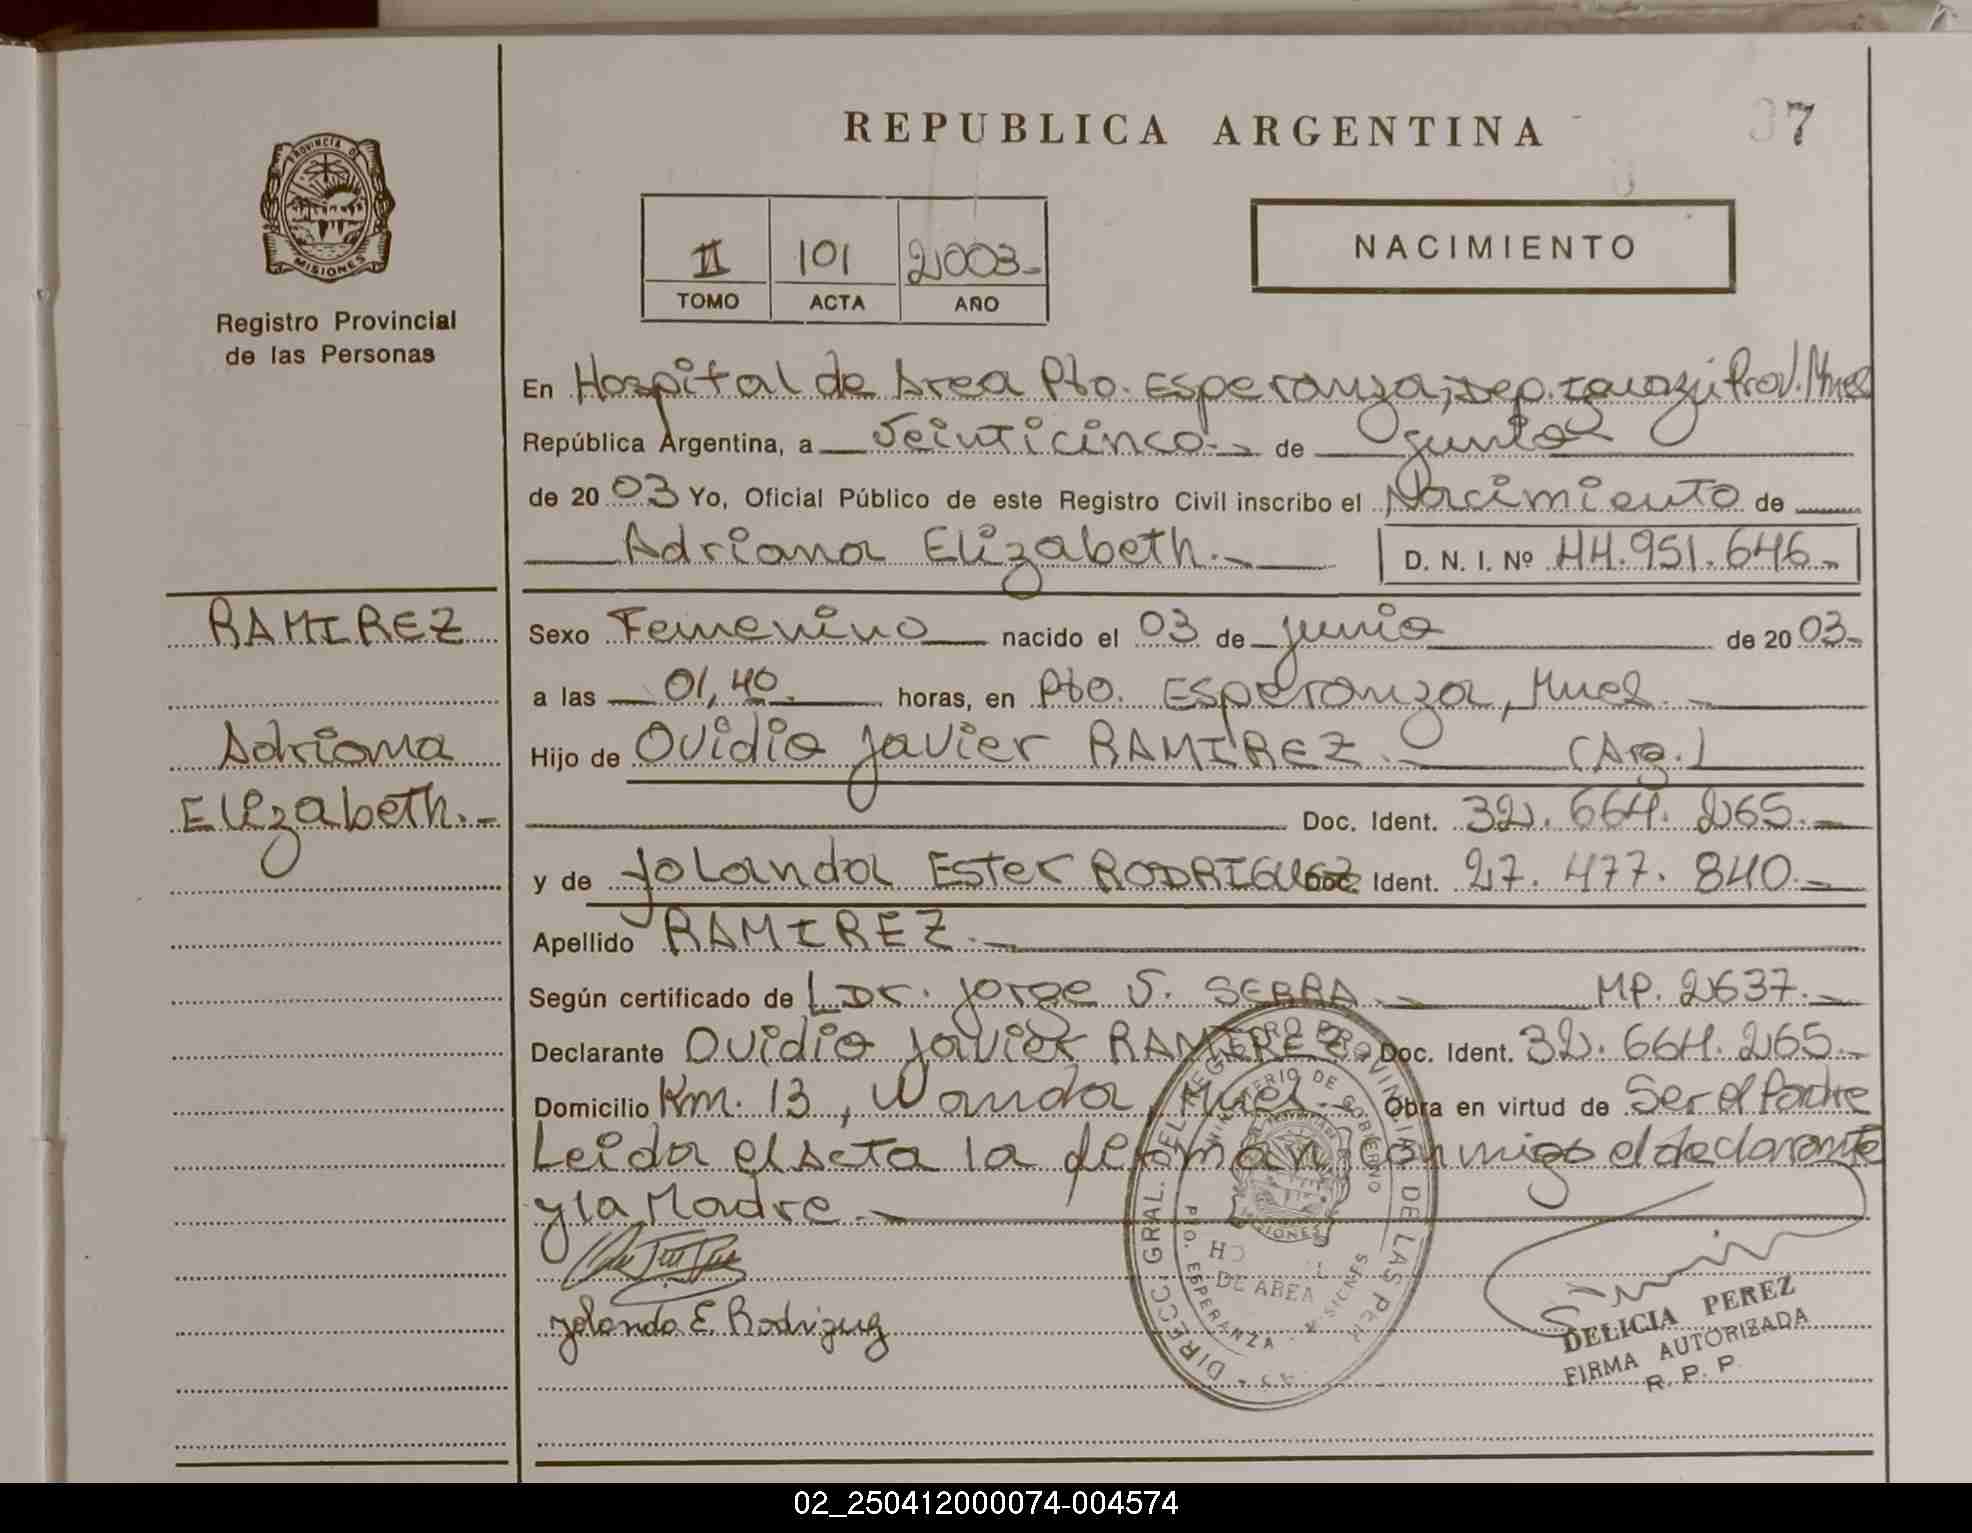 REPUBLICA ARGENTINA
37
PROVINCIA DE
MISIONES
Registro Provincial
de las Personas
II 101 2003-
TOMO ACTA AÑO
NACIMIENTO
En Hospital de Area Pto. Esperanza, Dep. Iguazú Prov. Mnes
República Argentina, a Veinticinco.- de junio
de 20 03 Yo, Oficial Público de este Registro Civil inscribo el Nacimiento de
Adriana Elizabeth.- D. N. I. Nº 44.951.646.-
RAMIREZ
Adriana
Elizabeth.-
Sexo Femenino nacido el 03 de junio de 20 03.-
a las 01,40. horas, en Pto. Esperanza, Mnes.-
Hijo de Ovidio Javier RAMIREZ.- (Arg.)
Doc. Ident. 32.664.265.-
y de Yolanda Ester RODRIGUEZ Doc. Ident. 27.477.840.-
Apellido RAMIREZ.-
Según certificado de Dr. Jorge S. SERRA.- MP. 2637.-
Declarante Ovidio Javier RAMIREZ Doc. Ident. 32.664.265.-
Domicilio Km. 13, Wanda, Mnes.- Obra en virtud de Ser el Padre
Leida el Acta la firman conmigo el declarante
y la Madre.-
Yolanda E. Rodriguez
DIRECC. GRAL. DEL REGISTRO PROVINCIAL DE LAS PER
MINISTERIO DE GOBIERNO
MISIONES
DE AREA
PTO. ESPERANZA - MISIONES
DELICIA PEREZ
FIRMA AUTORIZADA
R. P. P.
02_250412000074-004574